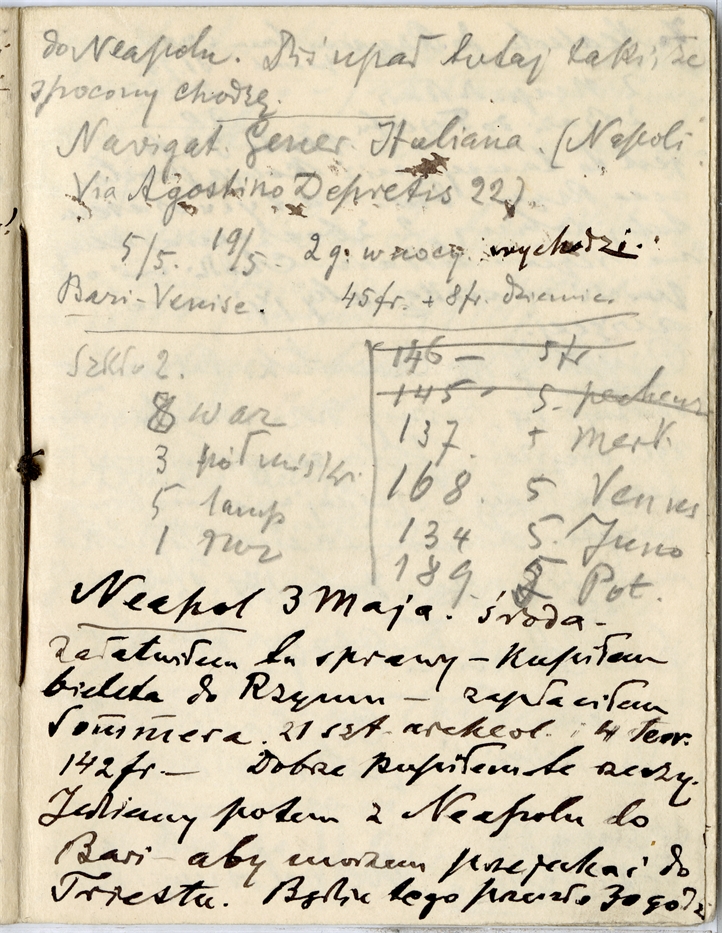 do Neapolu. Dziś upał tutaj taki, że
spocony chodzę.
Navigat. Gener. Italiana. (Napoli
Via Agostino Depretis 22)
5/5. 19/5. 2 g. w nocy wychodzi.
Bari-Venise. 45 fr. + 8 fr. dziennie.
Szkło 2.
8 waz
3 półmiski
5 lamp
1
146 — 5 fr.
145 - 5.
137. 5 Merk.
168. 5 Venus
134 5. Juno
189. Pot.
Neapol 3 Maja. środa.
załatwiłem tu sprawy — Kupiłem
bileta do Rzymu — zapłaciłem
Sommera. 21 szt. archeol. i 4 terr.
142 fr. — Dobrze kupiłem te rzeczy.
Jedziemy potem z Neapolu do
Bari — aby morzem przejechać do
Triestu. Będzie tego przeszło 30 godz